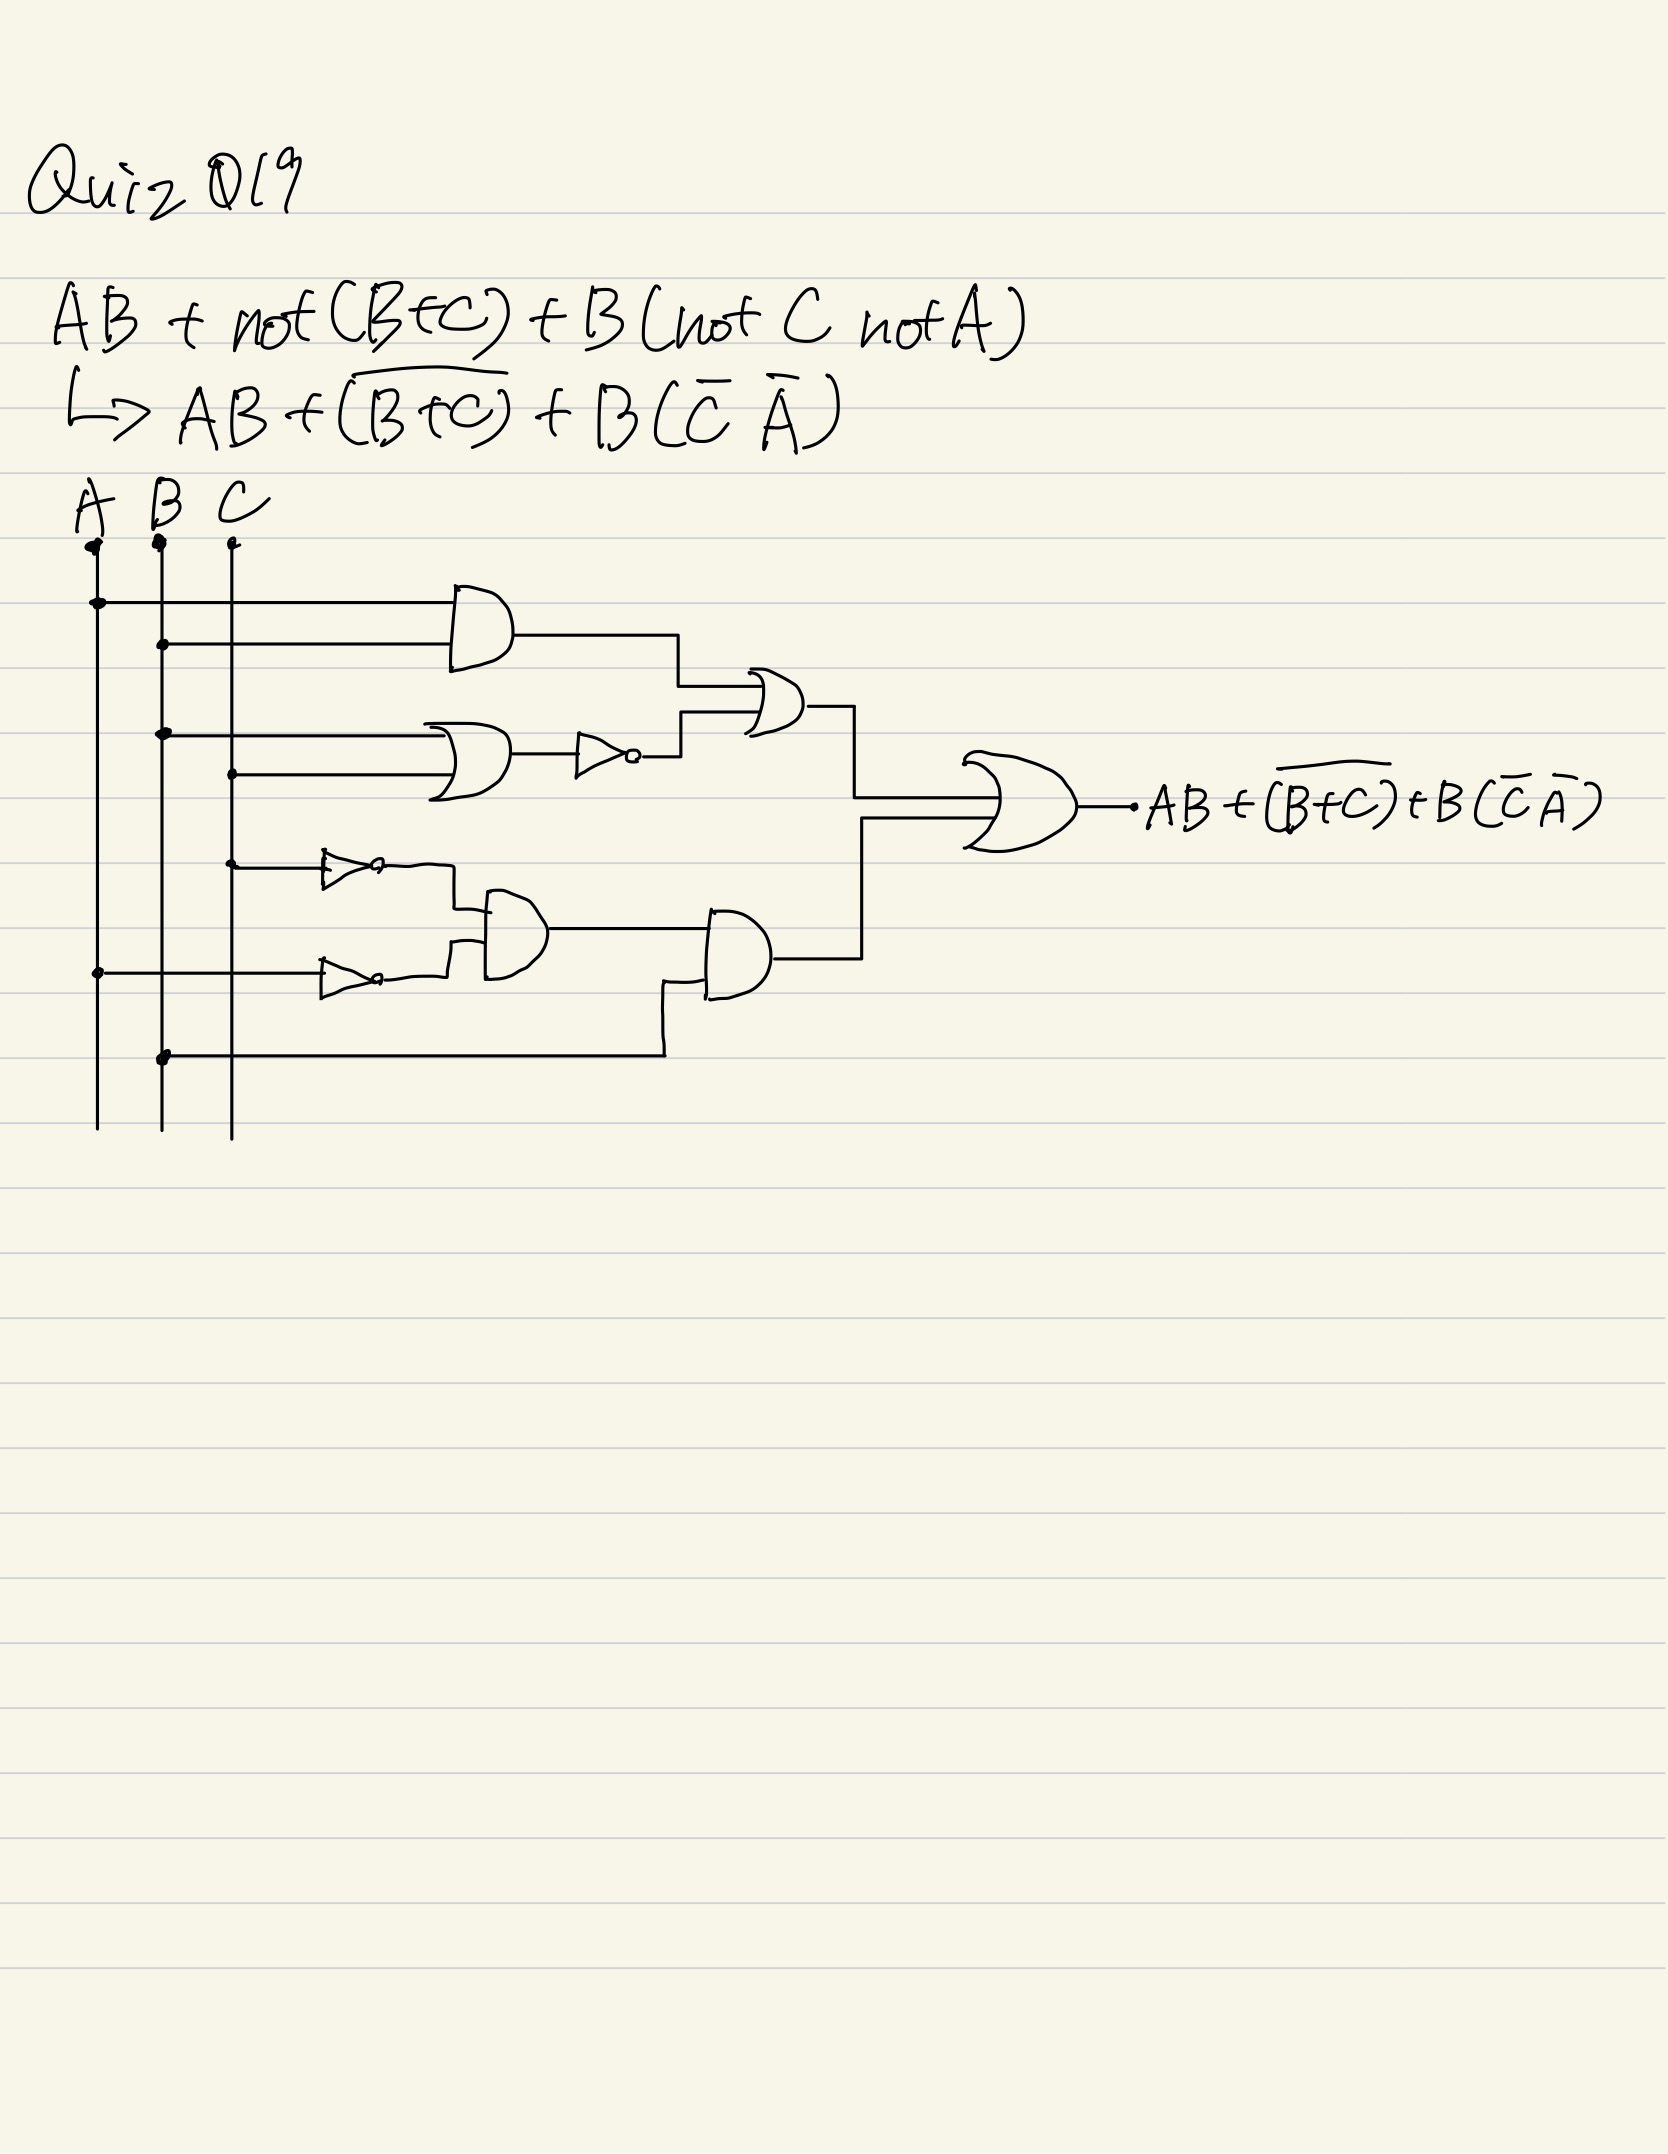 Quiz 019
AB + not(B+C) + B(not C not A)
↳ AB + (B̅+̅C̅) + B(C̅ A̅)
A B C
AB + (B̅+̅C̅) + B(C̅ A̅)